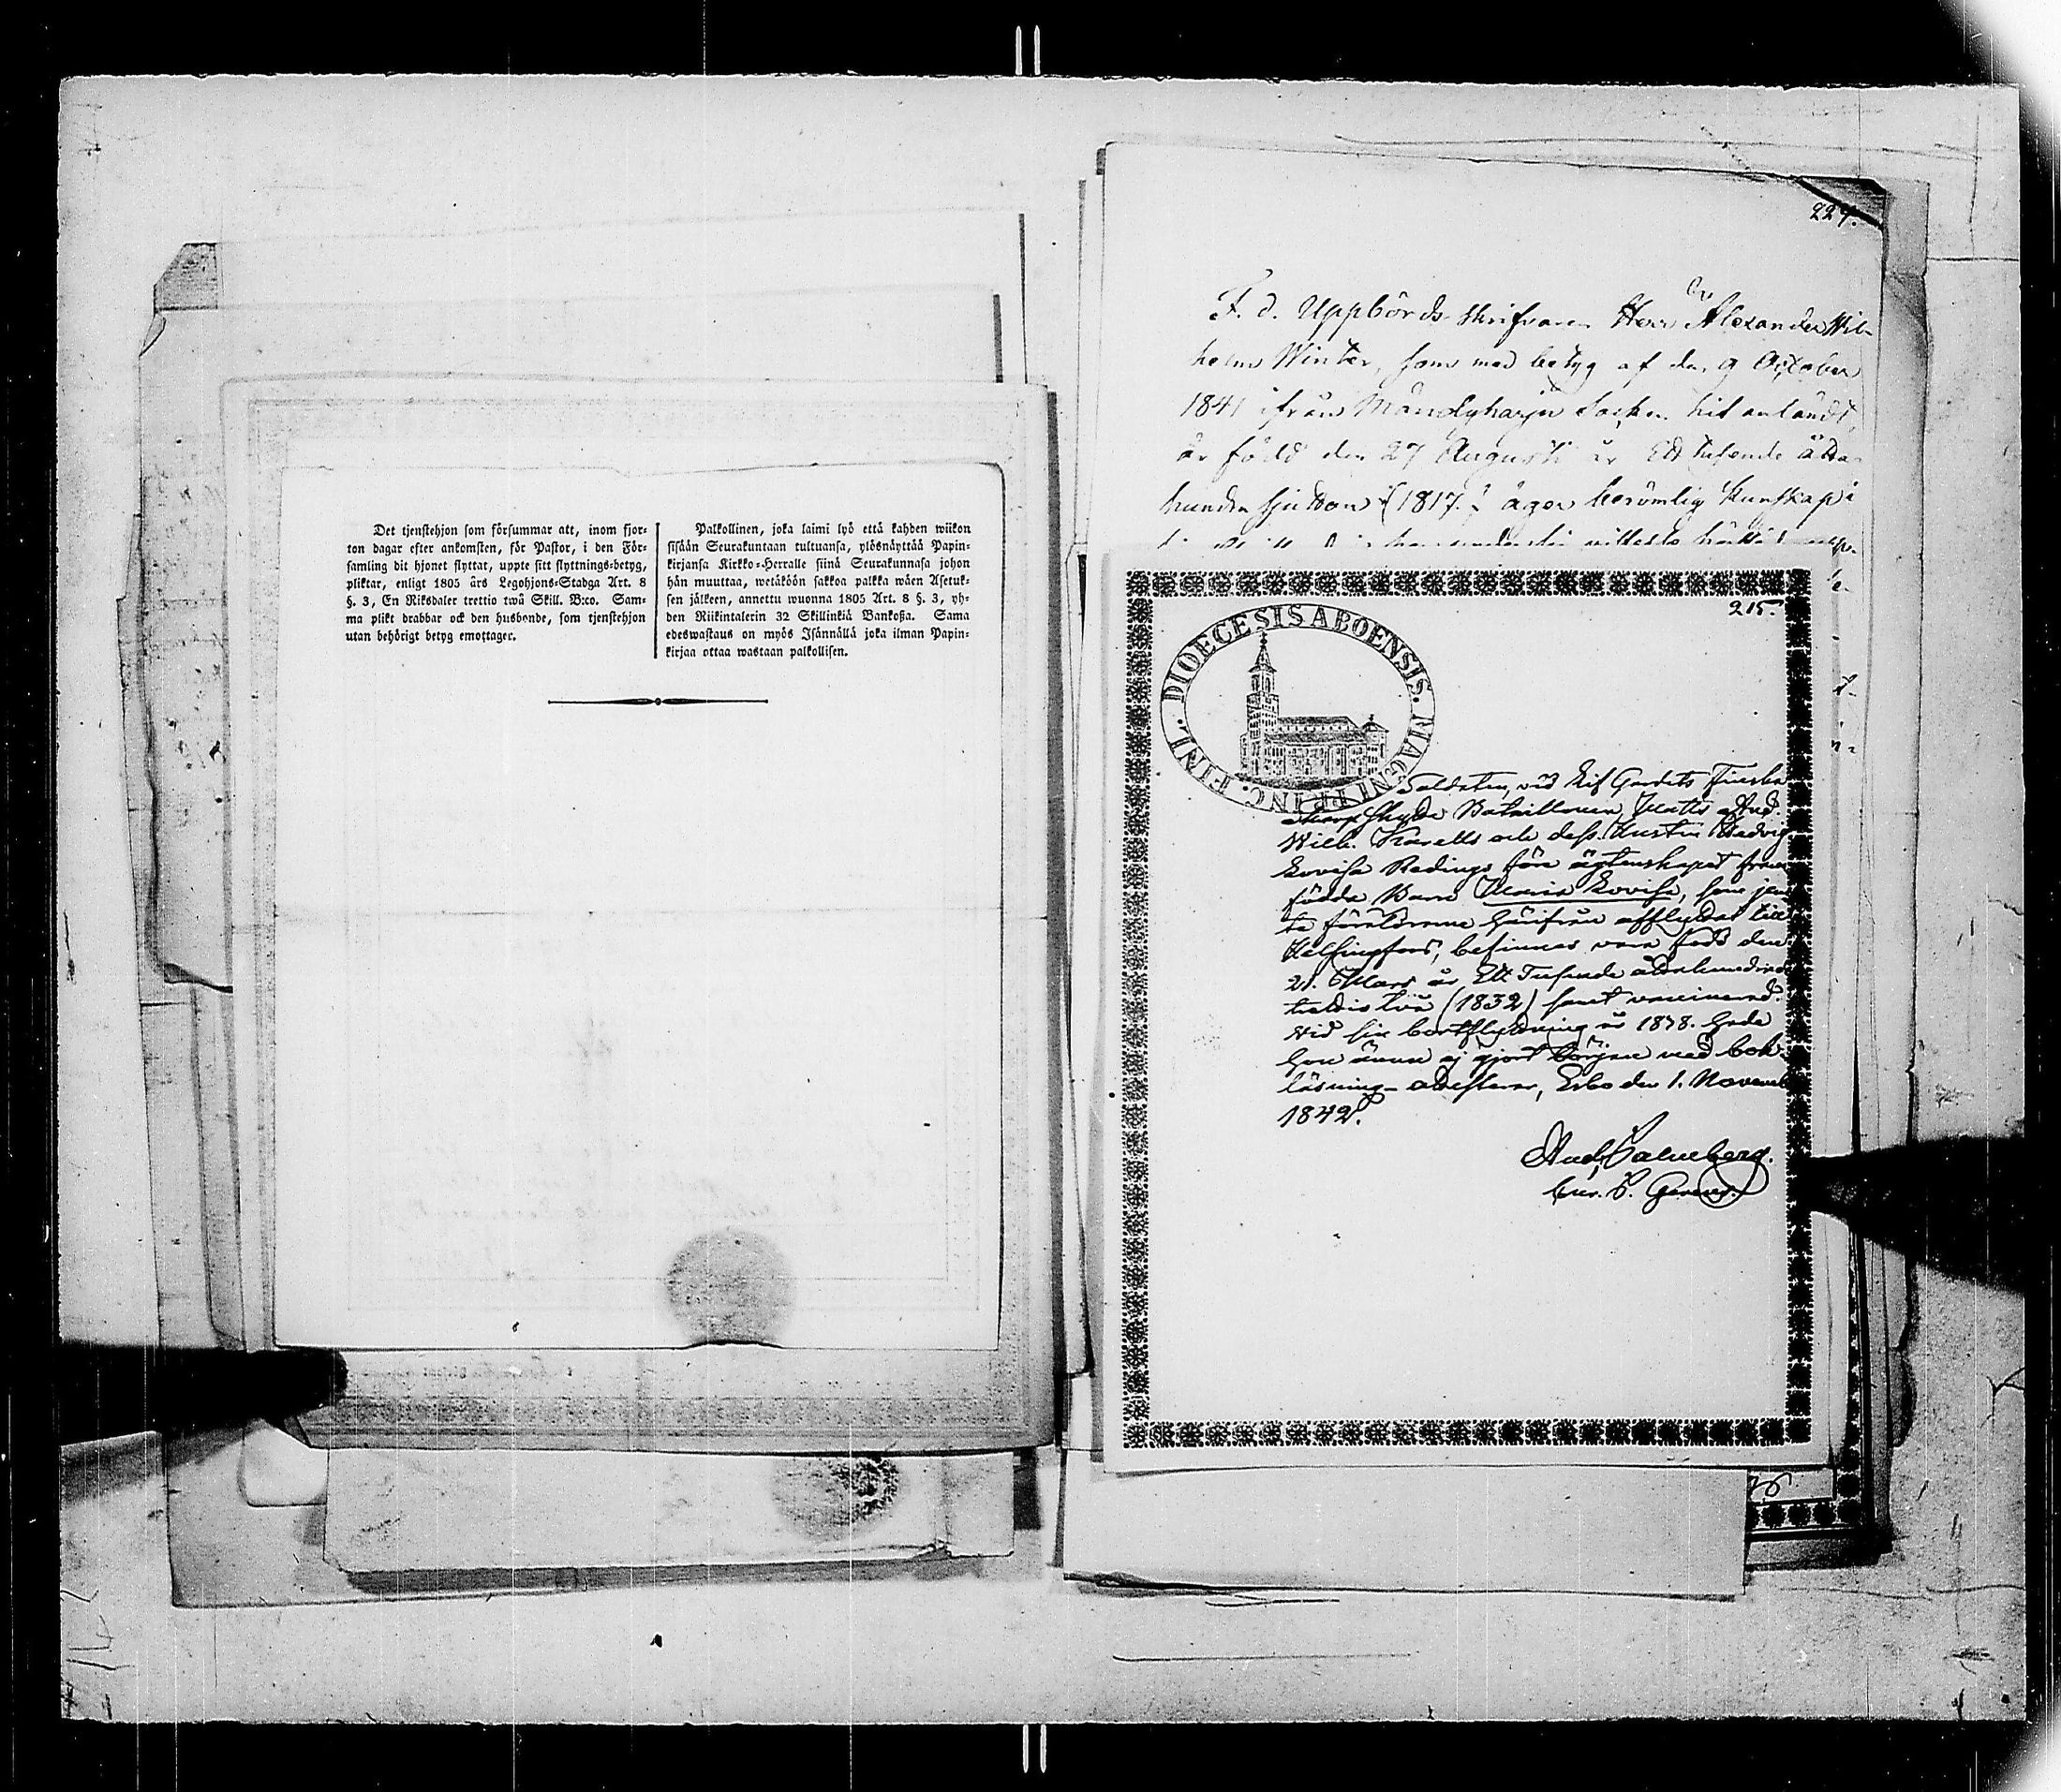 Det tjenstehjon som försummar att, inom fjor-
ton dagar efter ankomsten, för Pastor, i den För-
samling dit hjonet flyttat, uppte sitt flyttnings-betyg,
pliktar, enligt 1805 års Legohjons-Stadga Art. 8
§. 3, En Riksdaler trettio twå Skill. B:co. Sam-
ma plikt drabbar ock den husbonde, som tjenstehjon
utan behörigt betyg emottager.
Palkollinen, joka laimi lyö että kahden wiikon
sisään Seurakuntaan tultuansa, ylösnäyttää Papin-
kirjansa Kirkko-Herralle siinä Seurakunnasa johon
hän muuttaa, wetäköön sakkoa palkka wäen Asetuk-
sen jälkeen, annettu wuonna 1805 Art. 8 §. 3, yh-
den Riikintalerin 32 Skillinkiä Bankoßa. Sama
edeswastaus on myös Isännällä joka ilman Papin-
kirjaa ottaa wastaan palkollisen.
224.
F. d. Uppbörds-skrifvaren Herr Alexander Wil-
helm Winter, som med betyg af den 9 October
1841 ifrån Mändyharju Socken hit anländt,
är född den 27 Augusti år Ett tusende åtta-
hundra sjutton (1817.) äger berömlig kunskap i
215.
DIOECESIS ABOENSIS. MAGNI PRINC. FINL.
Soldaten, vid Lif Gardets Finska
Skarpskytte Bataillonen, Matts And.
Wilh. Karells och dess Hustru Hedvig
Lovisa Redings före ägtenskapet fram-
födda Barn Maria Lovisa, som jem-
te föräldrarne härifrån afflyttat till
Helsingfors, befinnes vara född den
21. Mars år Ett Tusende åttahundrade
trettio två (1832) samt vaccinerad.
Vid sin bortflyttning år 1838. hade
hon ännu ej gjort början med bok-
läsning attesterar, Esbo den 1. Novemb
1842.
And. Calneberg.